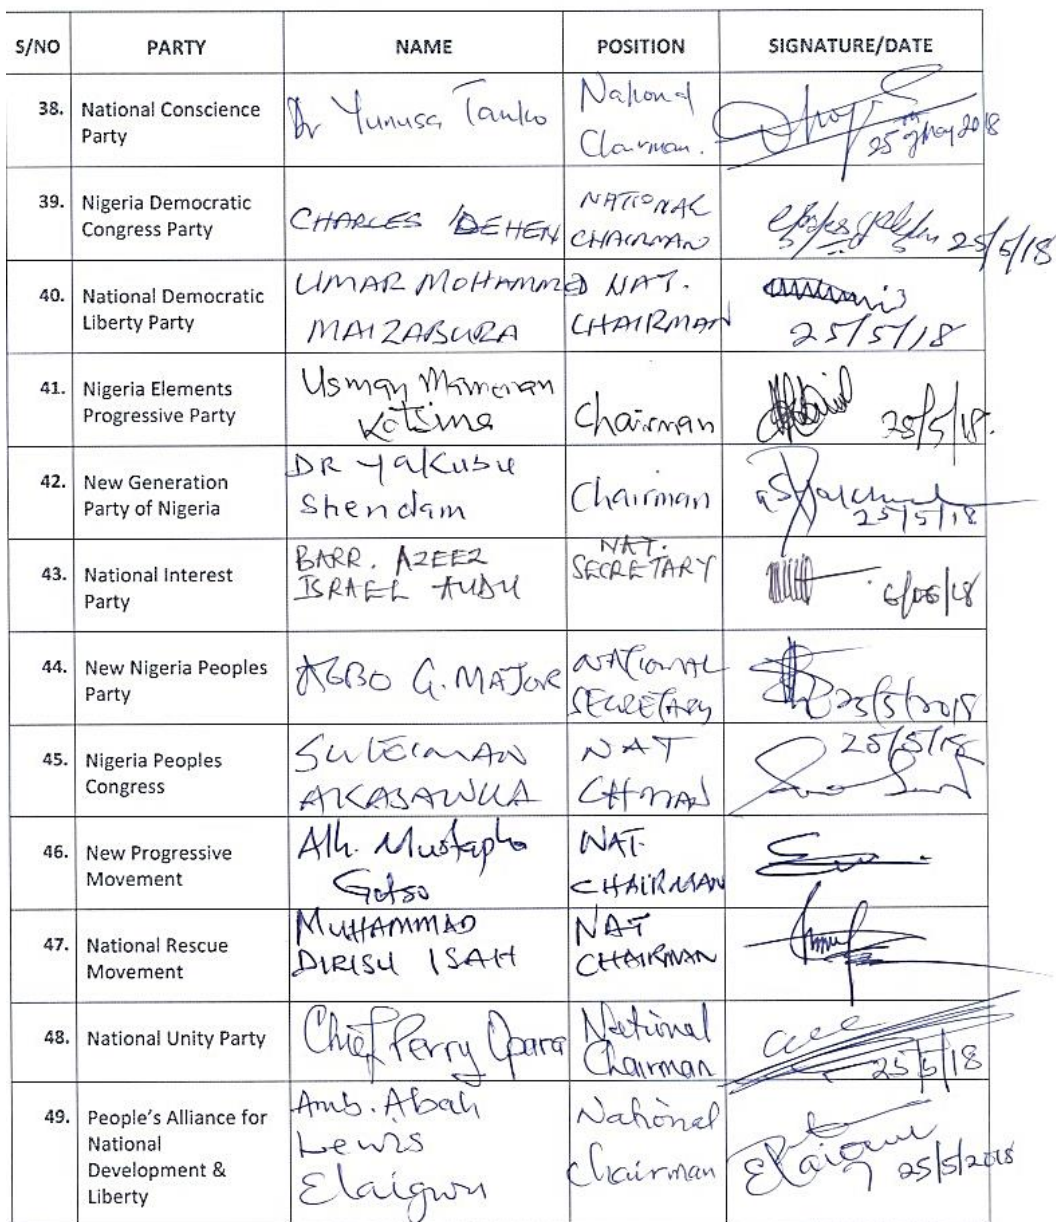 S/NO PARTY NAME POSITION SIGNATURE/DATE
38. National Conscience Party Dr Yunusa Tanko National Chairman. 25th May 2018
39. Nigeria Democratic Congress Party CHARLES IDEHEN NATIONAL CHAIRMAN 25/5/18
40. National Democratic Liberty Party UMAR MOHAMMED MAIZABURA NAT. CHAIRMAN 25/5/18
41. Nigeria Elements Progressive Party Usman Katsina Chairman 25/5/18.
42. New Generation Party of Nigeria DR Yakubu Shendam Chairman 25/5/18
43. National Interest Party BARR. AZEEZ ISRAEL AUDU NAT. SECRETARY 6/06/18
44. New Nigeria Peoples Party AGBO G. MAJOR NATIONAL SECRETARY 25/5/2018
45. Nigeria Peoples Congress SULEIMAN NAT CHMAN 25/5/18
46. New Progressive Movement Alh. Mustapha NAT. CHAIRMAN
47. National Rescue Movement MUHAMMAD DIRISU ISAH NAT CHAIRMAN
48. National Unity Party Chief Perry Opara National Chairman 25/5/18
49. People's Alliance for National Development & Liberty Amb. Abah Lewis Elaigwu National Chairman Elaigwu 25/5/2018